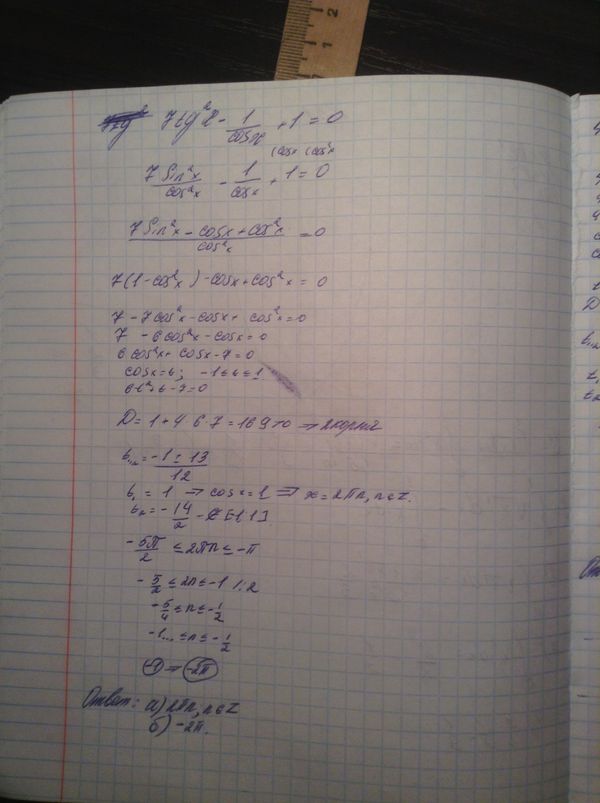 7tg²x - 1/cosx + 1 = 0
(cosx (cos²x
7 sin²x/cos²x - 1/cosx + 1 = 0
(7 sin²x - cosx + cos²x)/cos²x = 0
7(1 - cos²x) - cosx + cos²x = 0
7 - 7cos²x - cosx + cos²x = 0
7 - 6cos²x - cosx = 0
6cos²x + cosx - 7 = 0
cosx = t; -1 ≤ t ≤ 1
6t² + t - 7 = 0
D = 1 + 4 · 6 · 7 = 169 > 0 ⇒ 2 корня
t₁,₂ = (-1 ± 13)/12
t₁ = 1 ⇒ cosx = 1 ⇒ x = 2πn, n∈Z.
t₂ = -14/2 - ∉ [-1 1]
-5π/2 ≤ 2πn ≤ -π
-5/2 ≤ 2n ≤ -1 /:2
-5/4 ≤ n ≤ -1/2
-1... ≤ n ≤ -1/2
-1 ⇒ -2π
Ответ: а) 2πn, n∈Z
б) -2π.
1 2